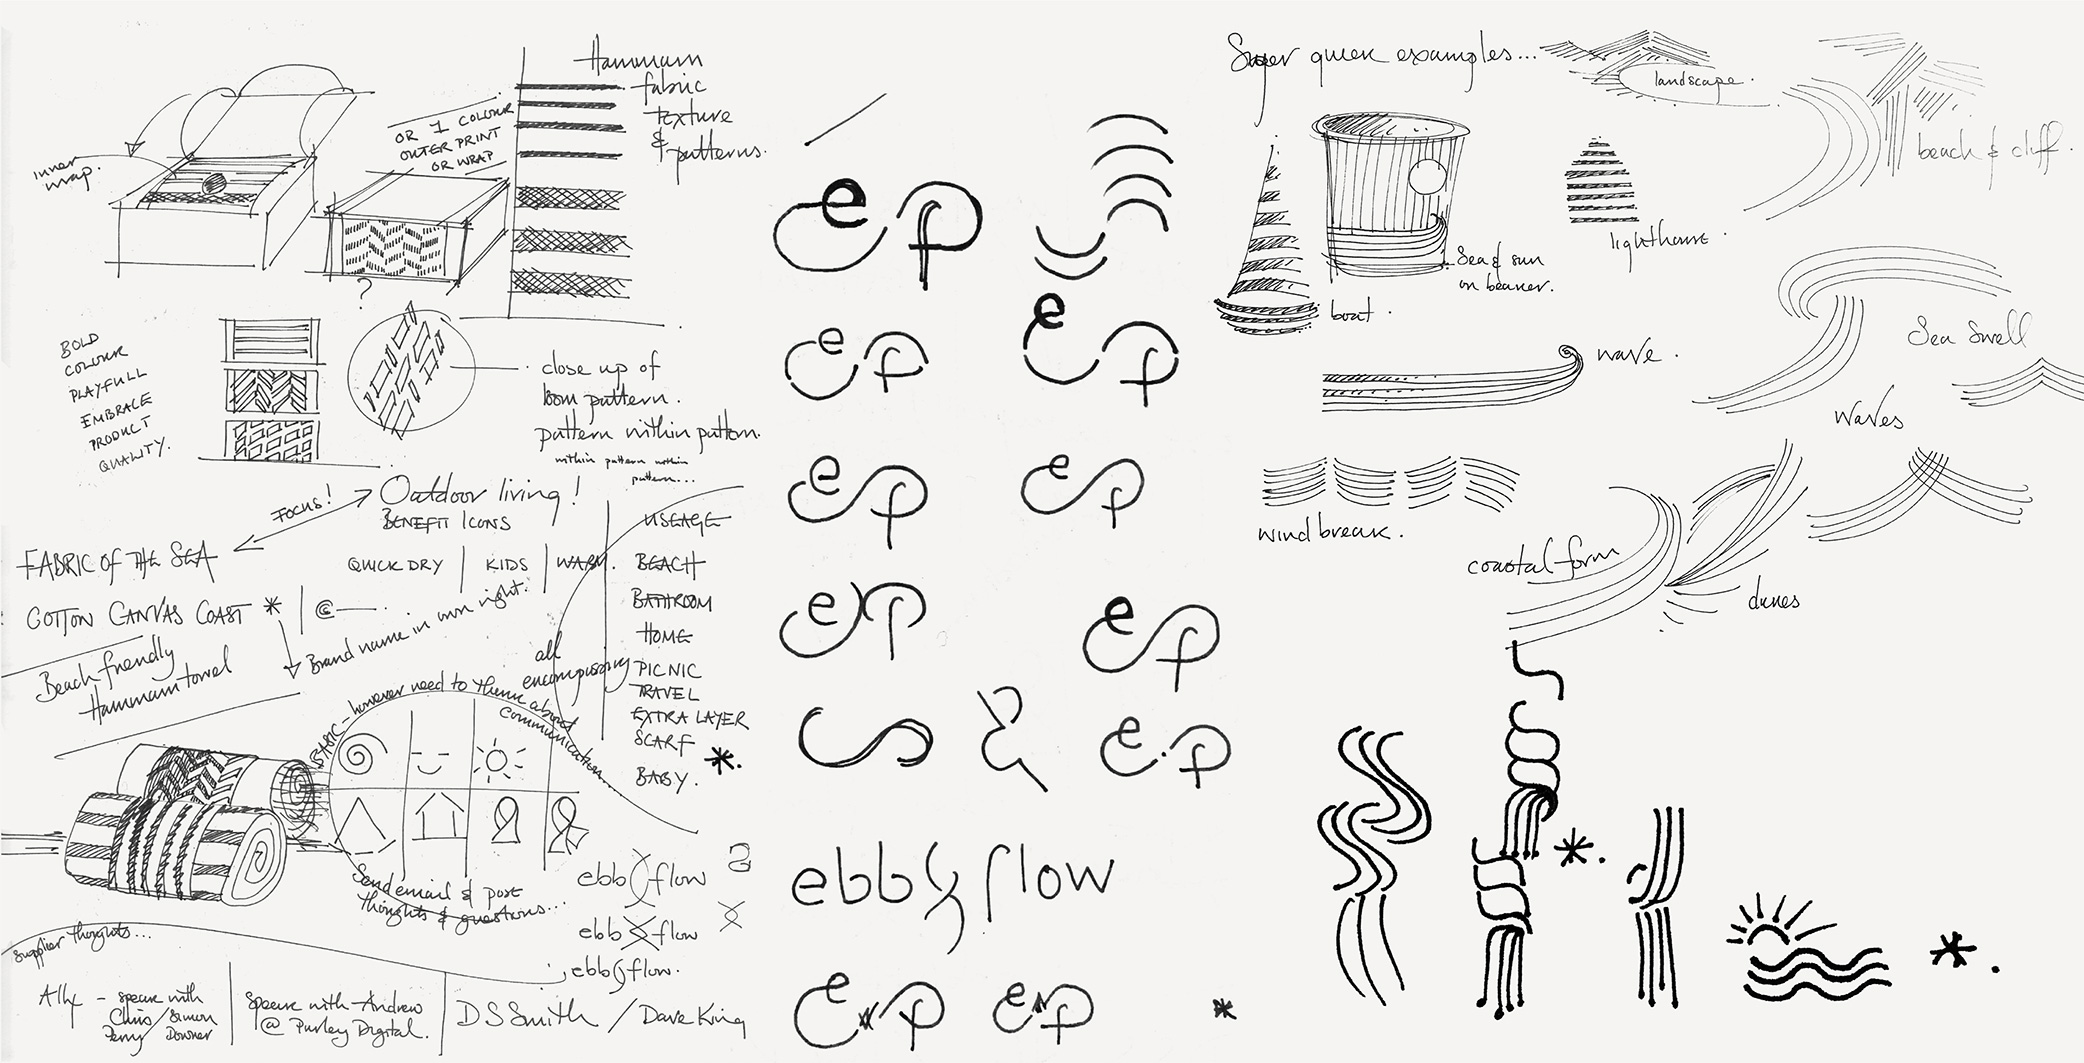 Hammam
fabric
texture
& patterns.
OR 1 COLOUR
OUTER PRINT
OR WRAP
inner
wrap.
?
BOLD
COLOUR
PLAYFULL
EMBRACE
PRODUCT
QUALITY.
close up of
loom pattern.
pattern within pattern.
within pattern within
pattern...
FOCUS!
Outdoor living!
BENEFIT ICONS
QUICK DRY | KIDS | WARM.
FABRIC OF THE SEA
COTTON CANVAS COAST * | @
Brand name in own right.
Beach friendly
Hammam towel
all
encompassing
USEAGE
BEACH
BATHROOM
HOME
PICNIC
TRAVEL
EXTRA LAYER
SCARF
BABY.
*.
BASIC - however need to think about
communication...
Send email & post
thoughts & questions...
ebb & flow
ebb & flow
ebb & flow.
Supplier thoughts...
Ally - speak with
Chris / Simon
Perry Downer
Speak with Andrew
@ Purley Digital.
DS Smith / Dave King
ep
ep
ep
ep
ep
ep
ep
e.p
ebb & flow
ep
ep
*
Super quick examples...
landscape.
beach & cliff.
Sea & sun
on beaker.
lighthouse.
boat.
wave.
Sea Swell
Waves
wind break.
coastal form
dunes
*.
*.